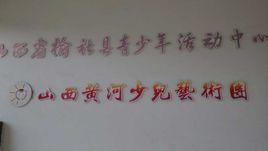 山西省榆社县青少年活动中心
山西黄河少儿藝術團